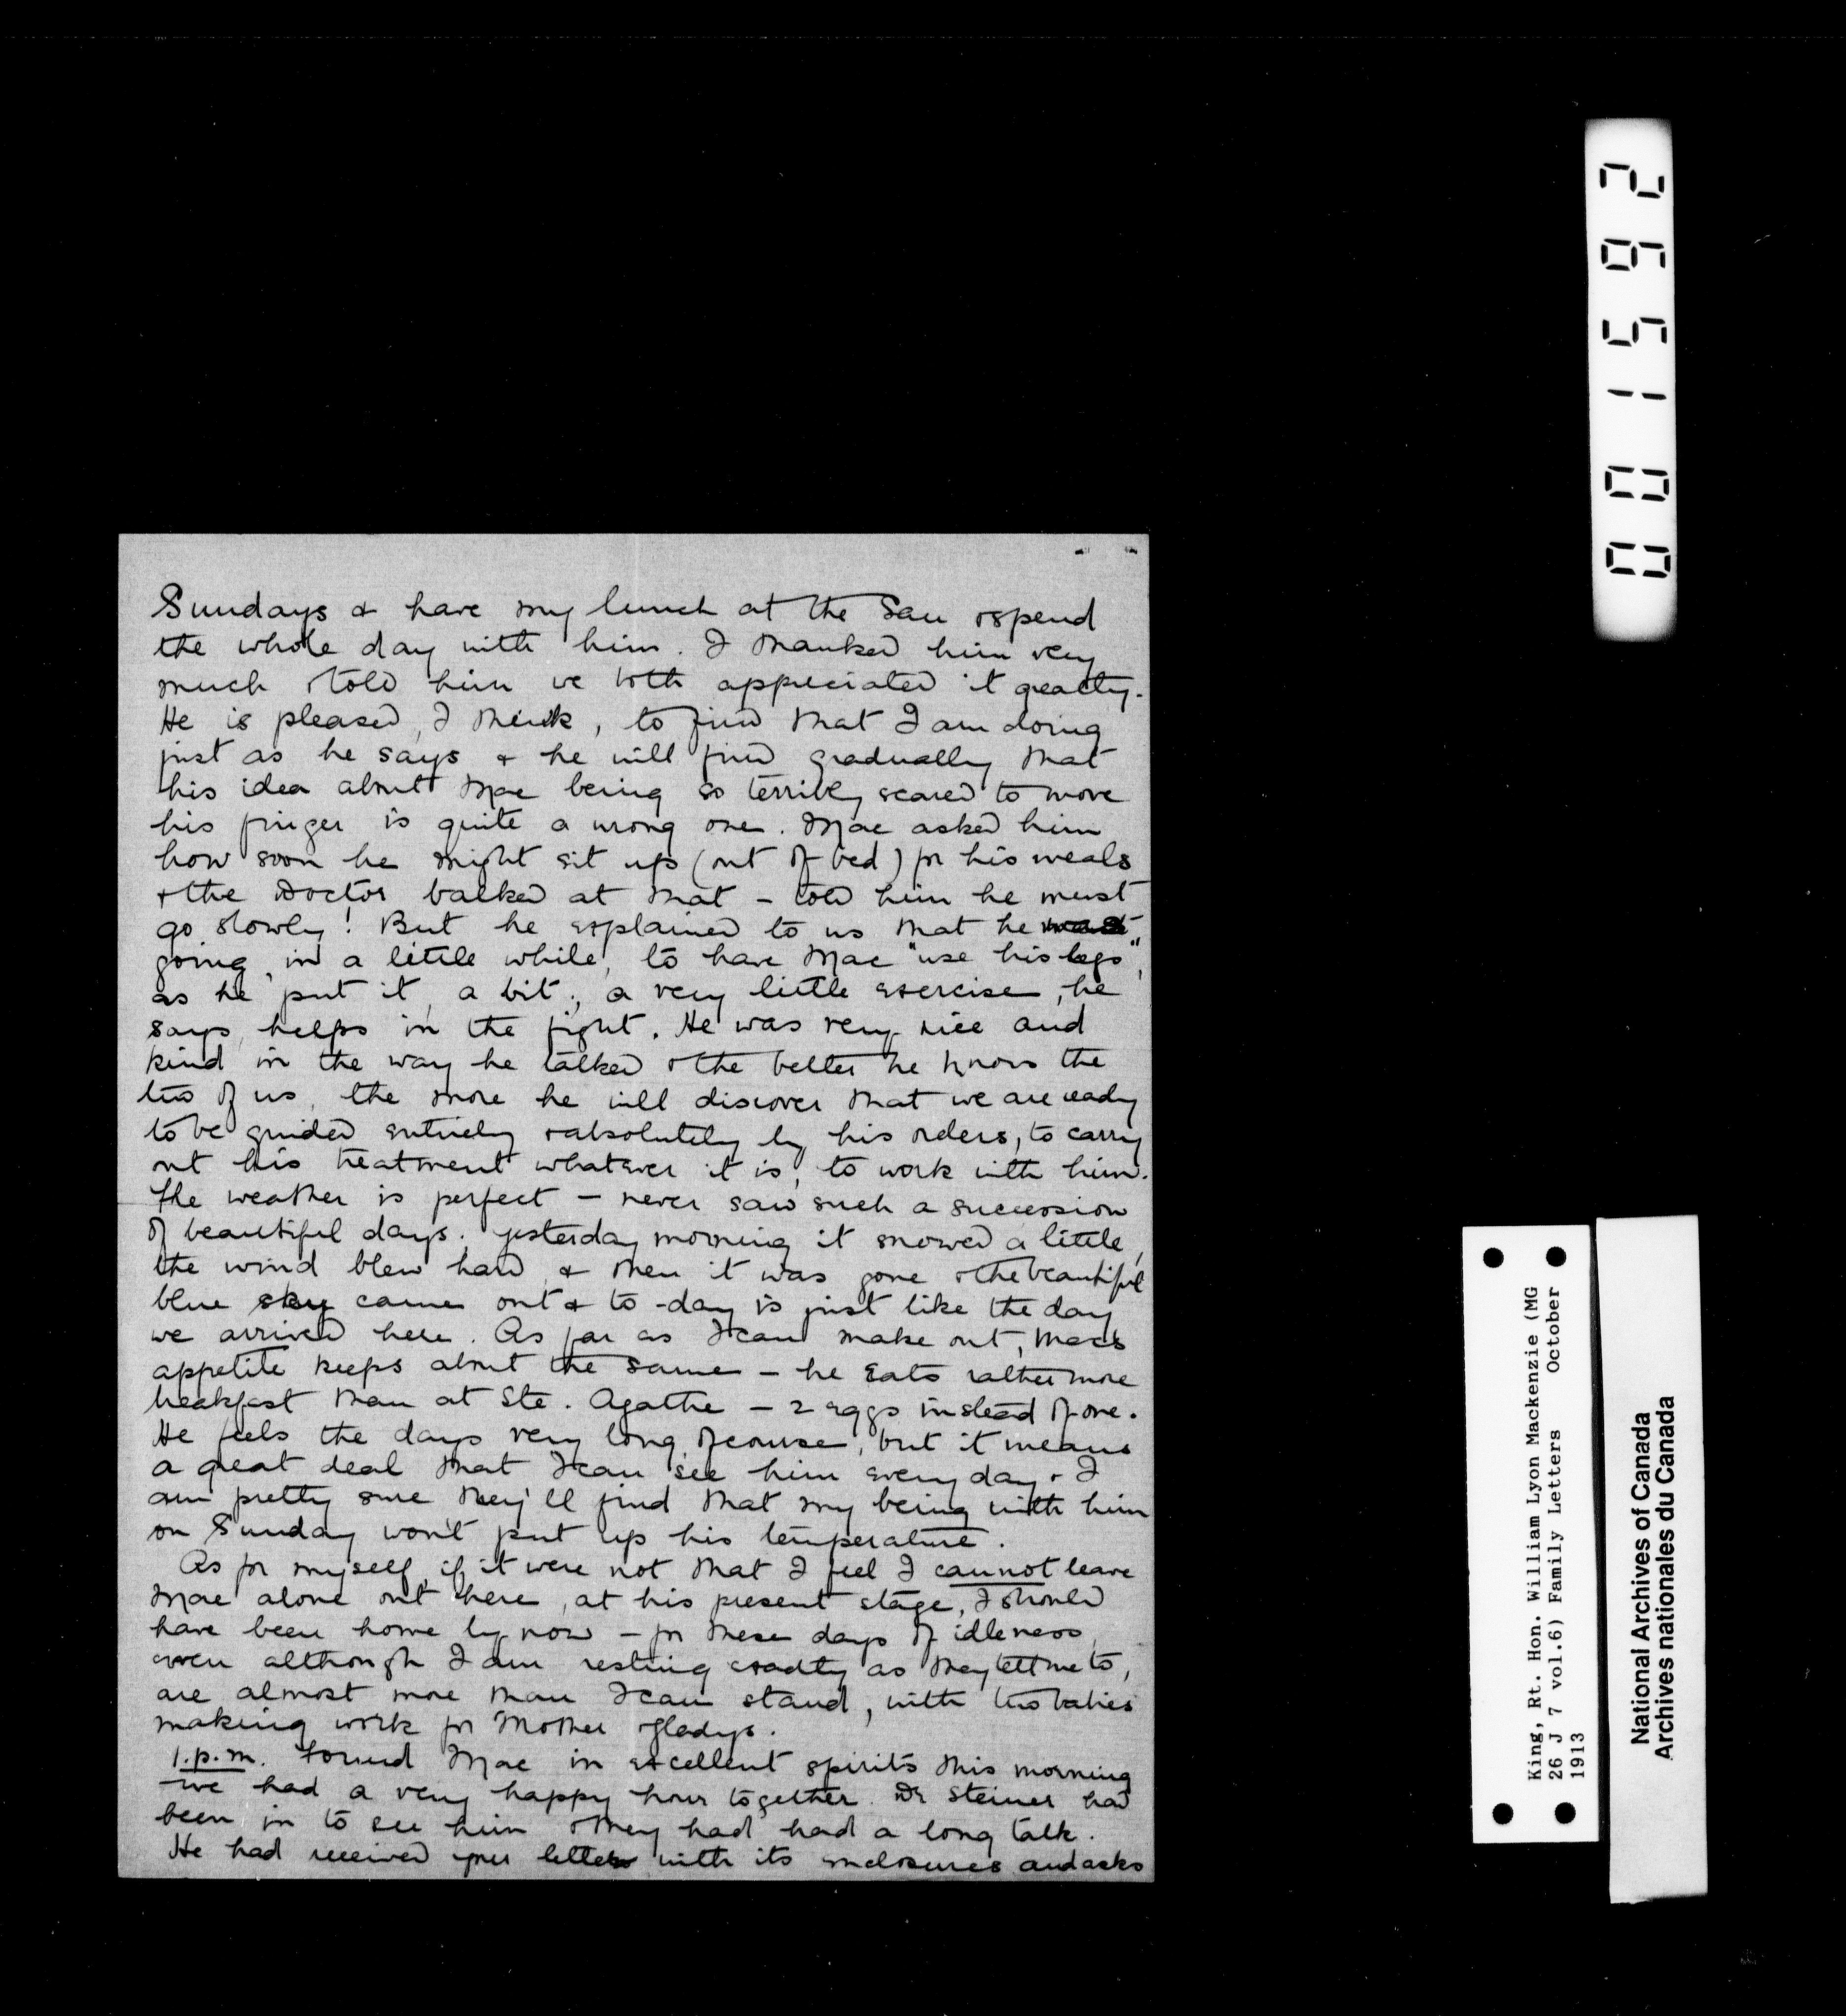 Sundays & have my lunch at the San & spend
the whole day with him. I thanked him very
much & told him we both appreciated it greatly.
He is pleased, I think, to find that I am doing
just as he says & he will find gradually that
his idea about Mac being so terribly scared to move
his finger is quite a wrong one. Mac asked him
how soon he might sit up (out of bed) for his meals
& the Doctor balked at that - told him he must
go slowly! But he explained to us that he
going, in a little while, to have Mac "use his legs",
as he put it, a bit; a very little exercise, he
says, helps in the fight. He was very nice and
kind in the way he talked & the better he knows the
two of us, the more he will discover that we are ready
to be guided entirely & absolutely by his orders, to carry
out his treatment whatever it is, to work with him.
The weather is perfect - never saw such a succession
of beautiful days. Yesterday morning it snowed a little,
the wind blew hard & then it was gone & the beautiful
blue sky came out & to-day is just like the day
we arrived here. As far as I can make out, Mac's
appetite keeps about the same - he eats rather more
breakfast than at Ste. Agathe - 2 eggs instead of one.
He feels the days very long, of course, but it means
a great deal that I can see him every day & I
am pretty sure they'll find that my being with him
on Sunday won't put up his temperature.
As for myself, if it were not that I feel I cannot leave
Mac alone out here, at his present stage, I should
have been home by now - for these days of idleness,
even although I am resting exactly as they tell me to,
are almost more than I can stand, with two babies
making work for Mother & Gladys.
1.p.m. Found Mac in excellent spirits this morning
& we had a very happy hour together. Dr Steiner had
been in to see him & they had had a long talk.
He had received your letter with its enclosures and asks
0001592
King, Rt. Hon. William Lyon Mackenzie (MG
26 J 7 vol.6) Family Letters October
1913
National Archives of Canada
Archives nationales du Canada